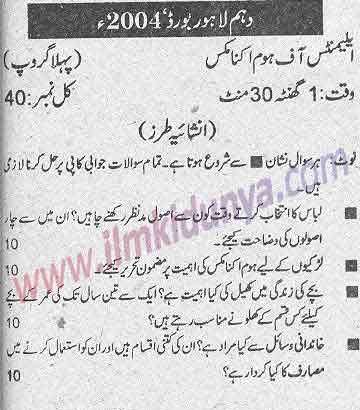 دہم لاہور بورڈ، 2004ء
ایلیمنٹس آف ہوم اکنامکس (پہلا گروپ)
وقت: 1 گھنٹہ 30 منٹ کل نمبر: 40
(انشائیہ طرز)
نوٹ: ہر سوال نشان ■ سے شروع ہوتا ہے۔ تمام سوالات جوابی کاپی پر حل کرنا لازمی
ہیں۔
■ لباس کا انتخاب کرتے وقت کون سے اصول مدنظر رکھنے چاہیں؟ ان میں سے چار
اصولوں کی وضاحت کیجئے۔ 10
■ لڑکیوں کے لیے ہوم اکنامکس کی اہمیت پر مضمون تحریر کیجئے۔ 10
■ بچے کی زندگی میں کھیل کی کیا اہمیت ہے؟ ایک سے تین سال تک کی عمر کے بچے
کیلئے کس قسم کے کھلونے مناسب رہتے ہیں؟ 10
■ خاندانی وسائل سے کیا مراد ہے؟ ان کی کتنی اقسام ہیں اور ان کو استعمال کرنے میں
مصارف کا کیا کردار ہے؟ 10
www.ilmkidunya.com